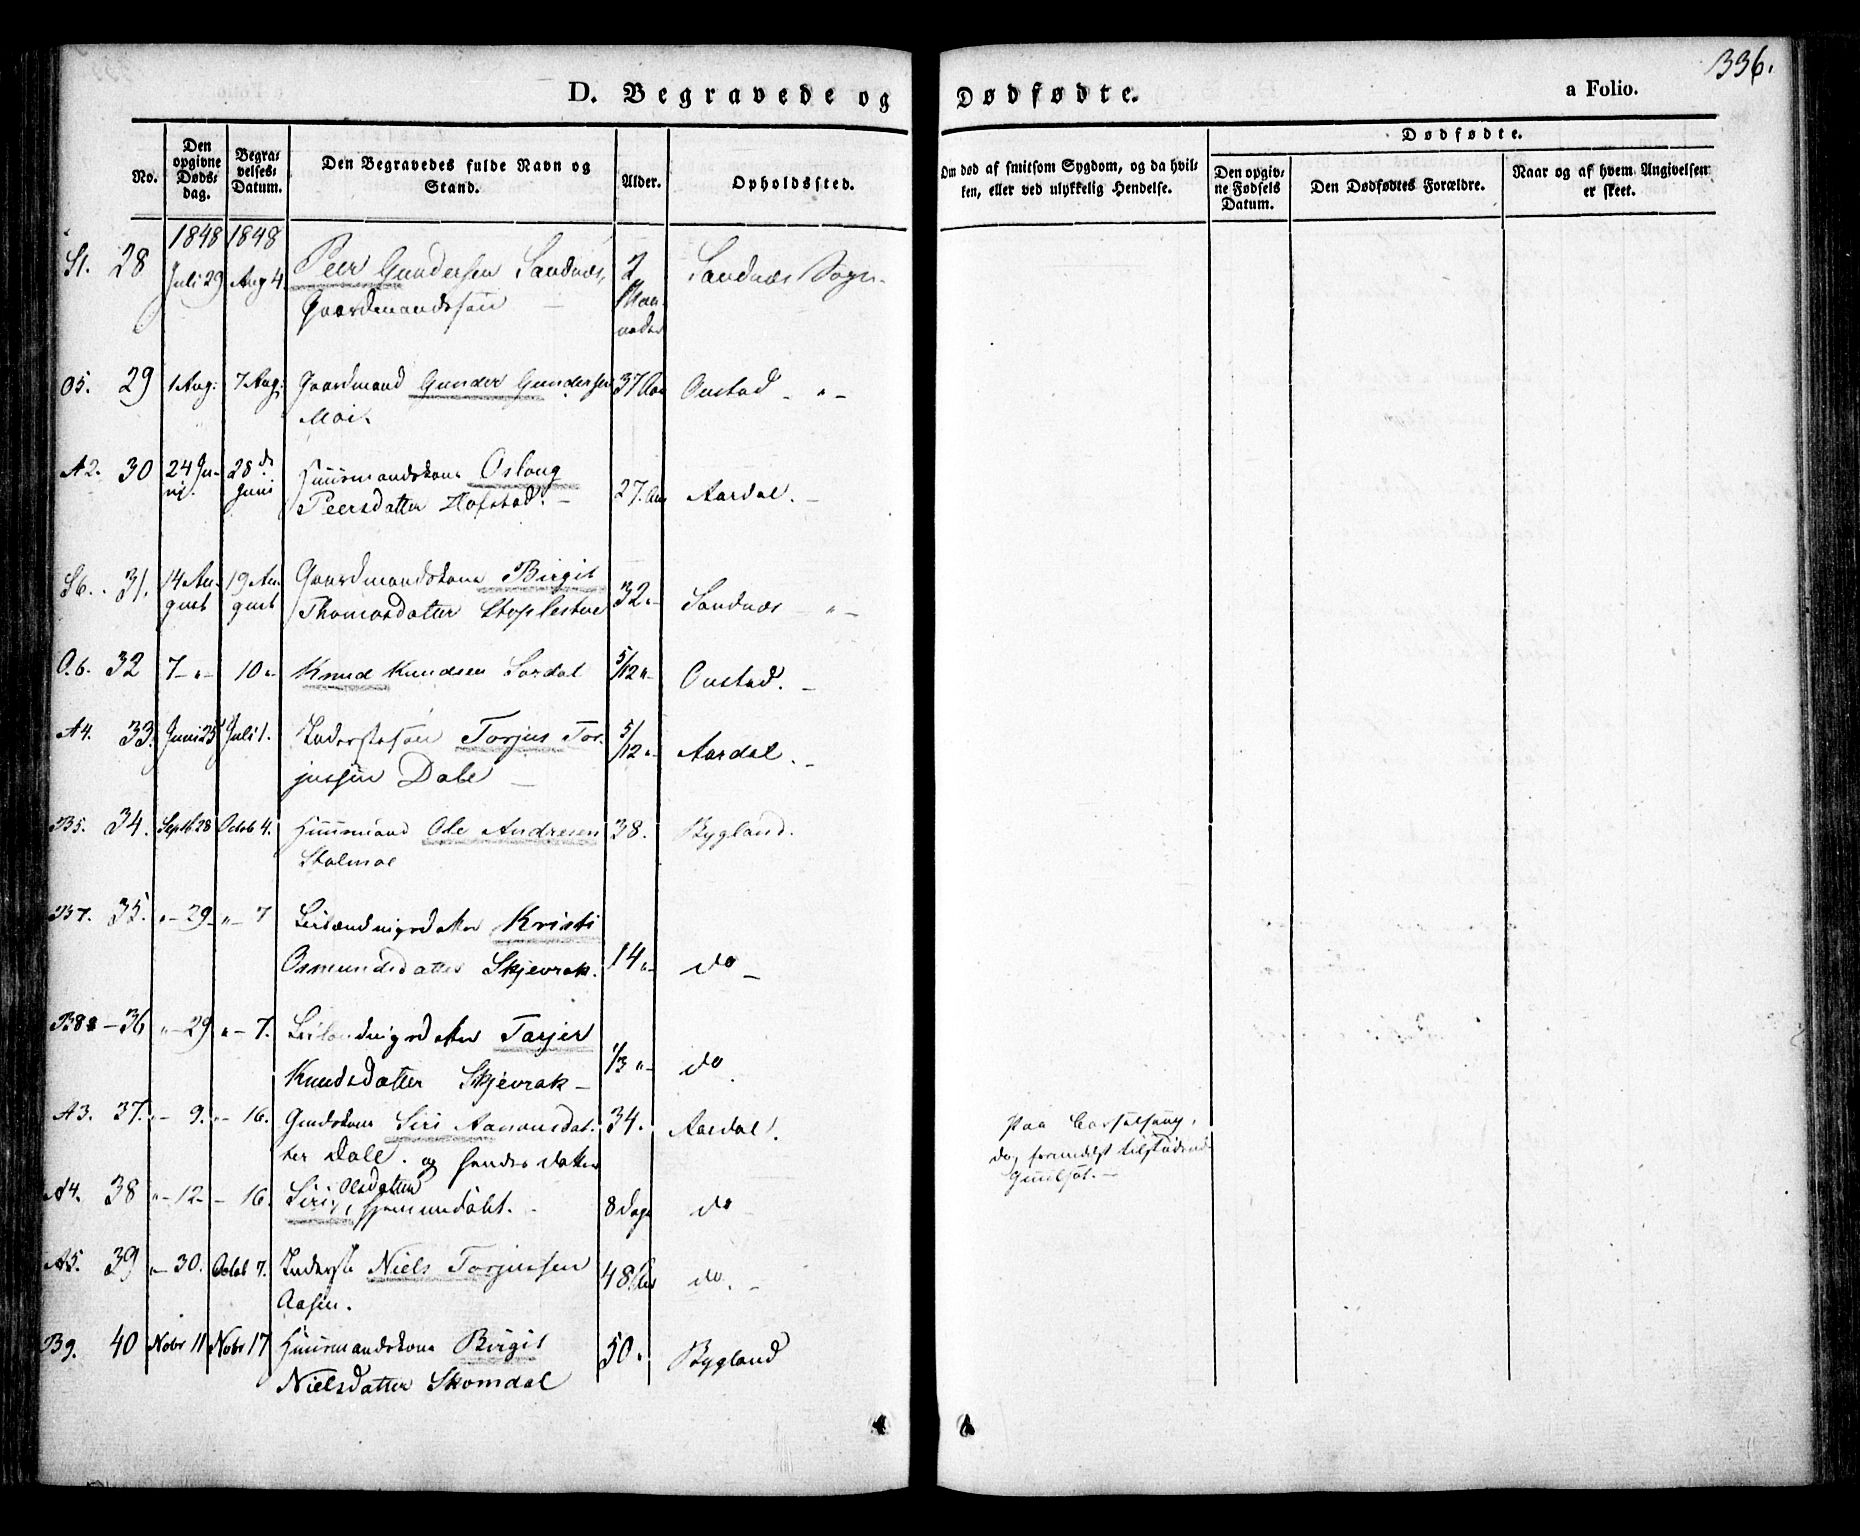 336.
D. Begravede og Dødfødte.
a Folio.
No.
Den opgivne Døds-dag.
Begra-velses-Datum.
Den Begravedes fulde Navn og Stand.
Alder.
Opholdssted.
Om død af smitsom Sygdom, og da hvil-
ken, eller ved ulykkelig Hendelse.
Dødfødte.
Den opgiv-ne Fødsels Datum.
Den Dødfødtes Forældre.
Naar og af hvem Angivelsen er skeet.
1848 1848
S1. 28 Juli 29 Aug 4. Peer Gundersen Sandnæs, 2 Maa- Sandnæs Sogn.
Gaardmandssøn — neder
O5. 29 1 Aug: 7 Aug: Gaardmand Gunder Gundersen 37 Aar Oustad - " -
Moi.
A2. 30 24 Ju- 28 de Huusmandskone Oslaug
nj. Juni Peersdatter Hofstad. - 27. Aar Aardal. -
S6. 31. 14 Au- 19 Au- Gaardmandskone Birgit 32 "- Sandnæs - " -
gust gust Thomasdatter
O.6. 32 7 - " - 10 "- Knud Knudsen Sordal 5/12 "- Oustad. -
A4. 33. Juni 25 Juli 1. Inderstesøn Torjus Tor- 5/12 "- Aardal. -
jussen Dale -
B5. 34. Septb 28 Octob 4. Huusmand Ole Andresen 38. Bygland.
Stalmoe
B7. 35. " - 29 - " - 7 Leilændingsdatter Kristi
Osmundsdatter Skjevrak. 14 "- do -
B8 - 36 " - 29 " - 7. Leilændingsdatter Torjer
Knudsdatter Skjevrak - 1/3 "- do
A3. 37. " - 9. " - 16. Siri Aanonsdat- 34. Aardal. Paa Barselseng,
ter Dale. og hendes datter do, formedelst
A4. 38 " - 12 - - 16. Siri, Olsdatter hjemmedøbt. - 8 Dage do
A5. 39 " - 30. Octob 7. Inderste Niels Torjussen 48 Aar do. -
Aasen.
B9. 40 Nobr 11 Nobr 17 Huusmandskone Birgit 50 " Bygland
Nielsdatter Skomdal